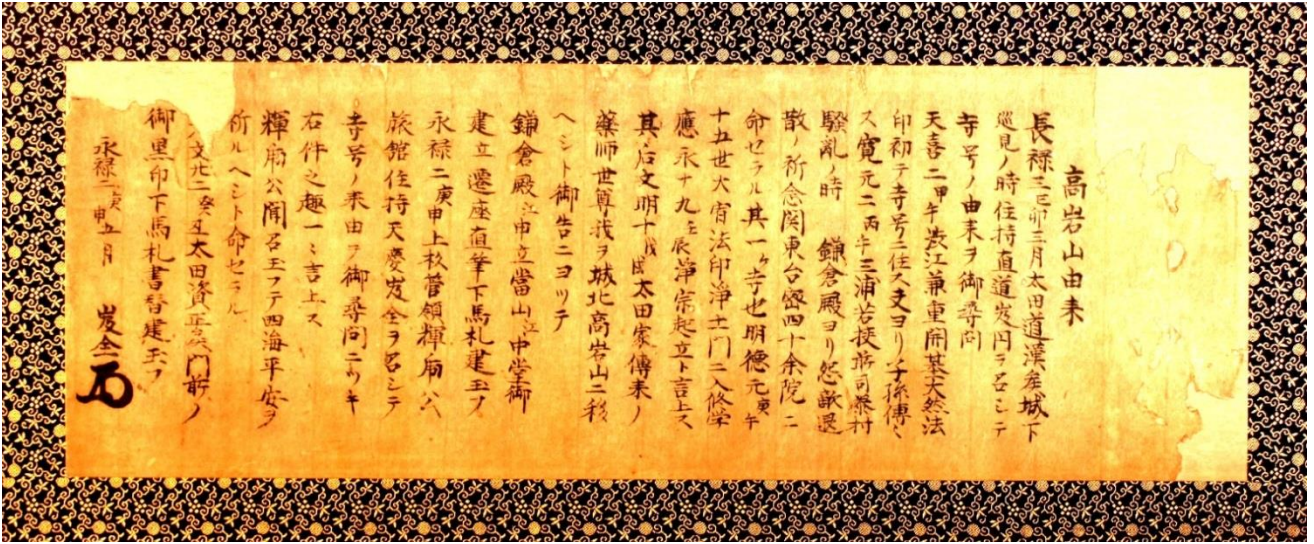 高岩山由来
長禄三三卯三月太田道漢岩城下
巡見ノ時住持直道炭円ヲ召シテ
寺号ノ由来ヲ御尋問
天喜二甲午渋江兼重開基大然法
印初テ寺号ニ住ス夫ヨリ子孫傳ヘ
ス寛元二丙午三浦若挾前司泰村
騒乱ノ時 鎌倉殿ヨリ怨敵退
散ノ祈念関東台密四十余院ニ
命セラル其一ヶ寺也明徳元庚午
十五世大宥法印浄土門ニ入修学
應永十九壬辰浄宗起立ト言上ス
其后文明十戊戌太田家傳来ノ
薬師世尊我ヲ城北高岩山ニ移
ヘシト御告ニヨツテ
鎌倉殿江申立當山江中堂御
建立遷座直筆下馬札建玉フ
永禄二庚申上杦菅領輝扇公
旅館住持天慶炭全ヲ召シテ
寺号ノ来由ヲ御尋問ニツキ
右件之趣一ミ言上ス
輝扇公聞召玉フテ四海平安ヲ
祈ルヘシト命セラル
文元二癸丑太田資正 門前ノ
御黒印下馬札書替建玉フ
永禄二庚申五月 炭全